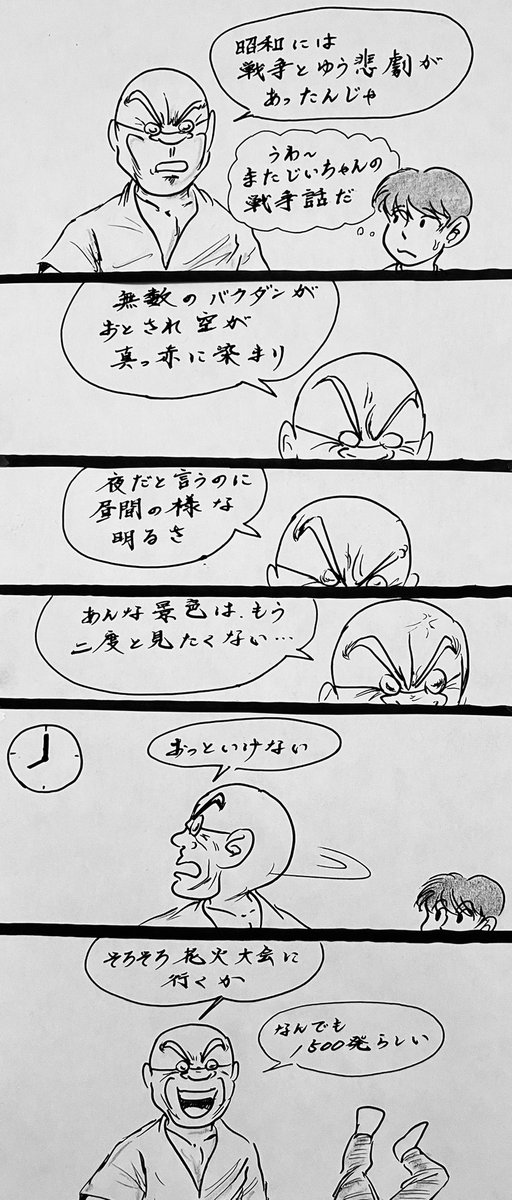 昭和には
戦争とゆう悲劇が
あったんじゃ
うわ～
またじいちゃんの
戦争話だ
無数のバクダンが
おとされ空が
真っ赤に染まり
夜だと言うのに
昼間の様な
明るさ
あんな景色は、もう
二度と見たくない…
おっといけない
そろそろ花火大会に
行くか
なんでも
1500発らしい